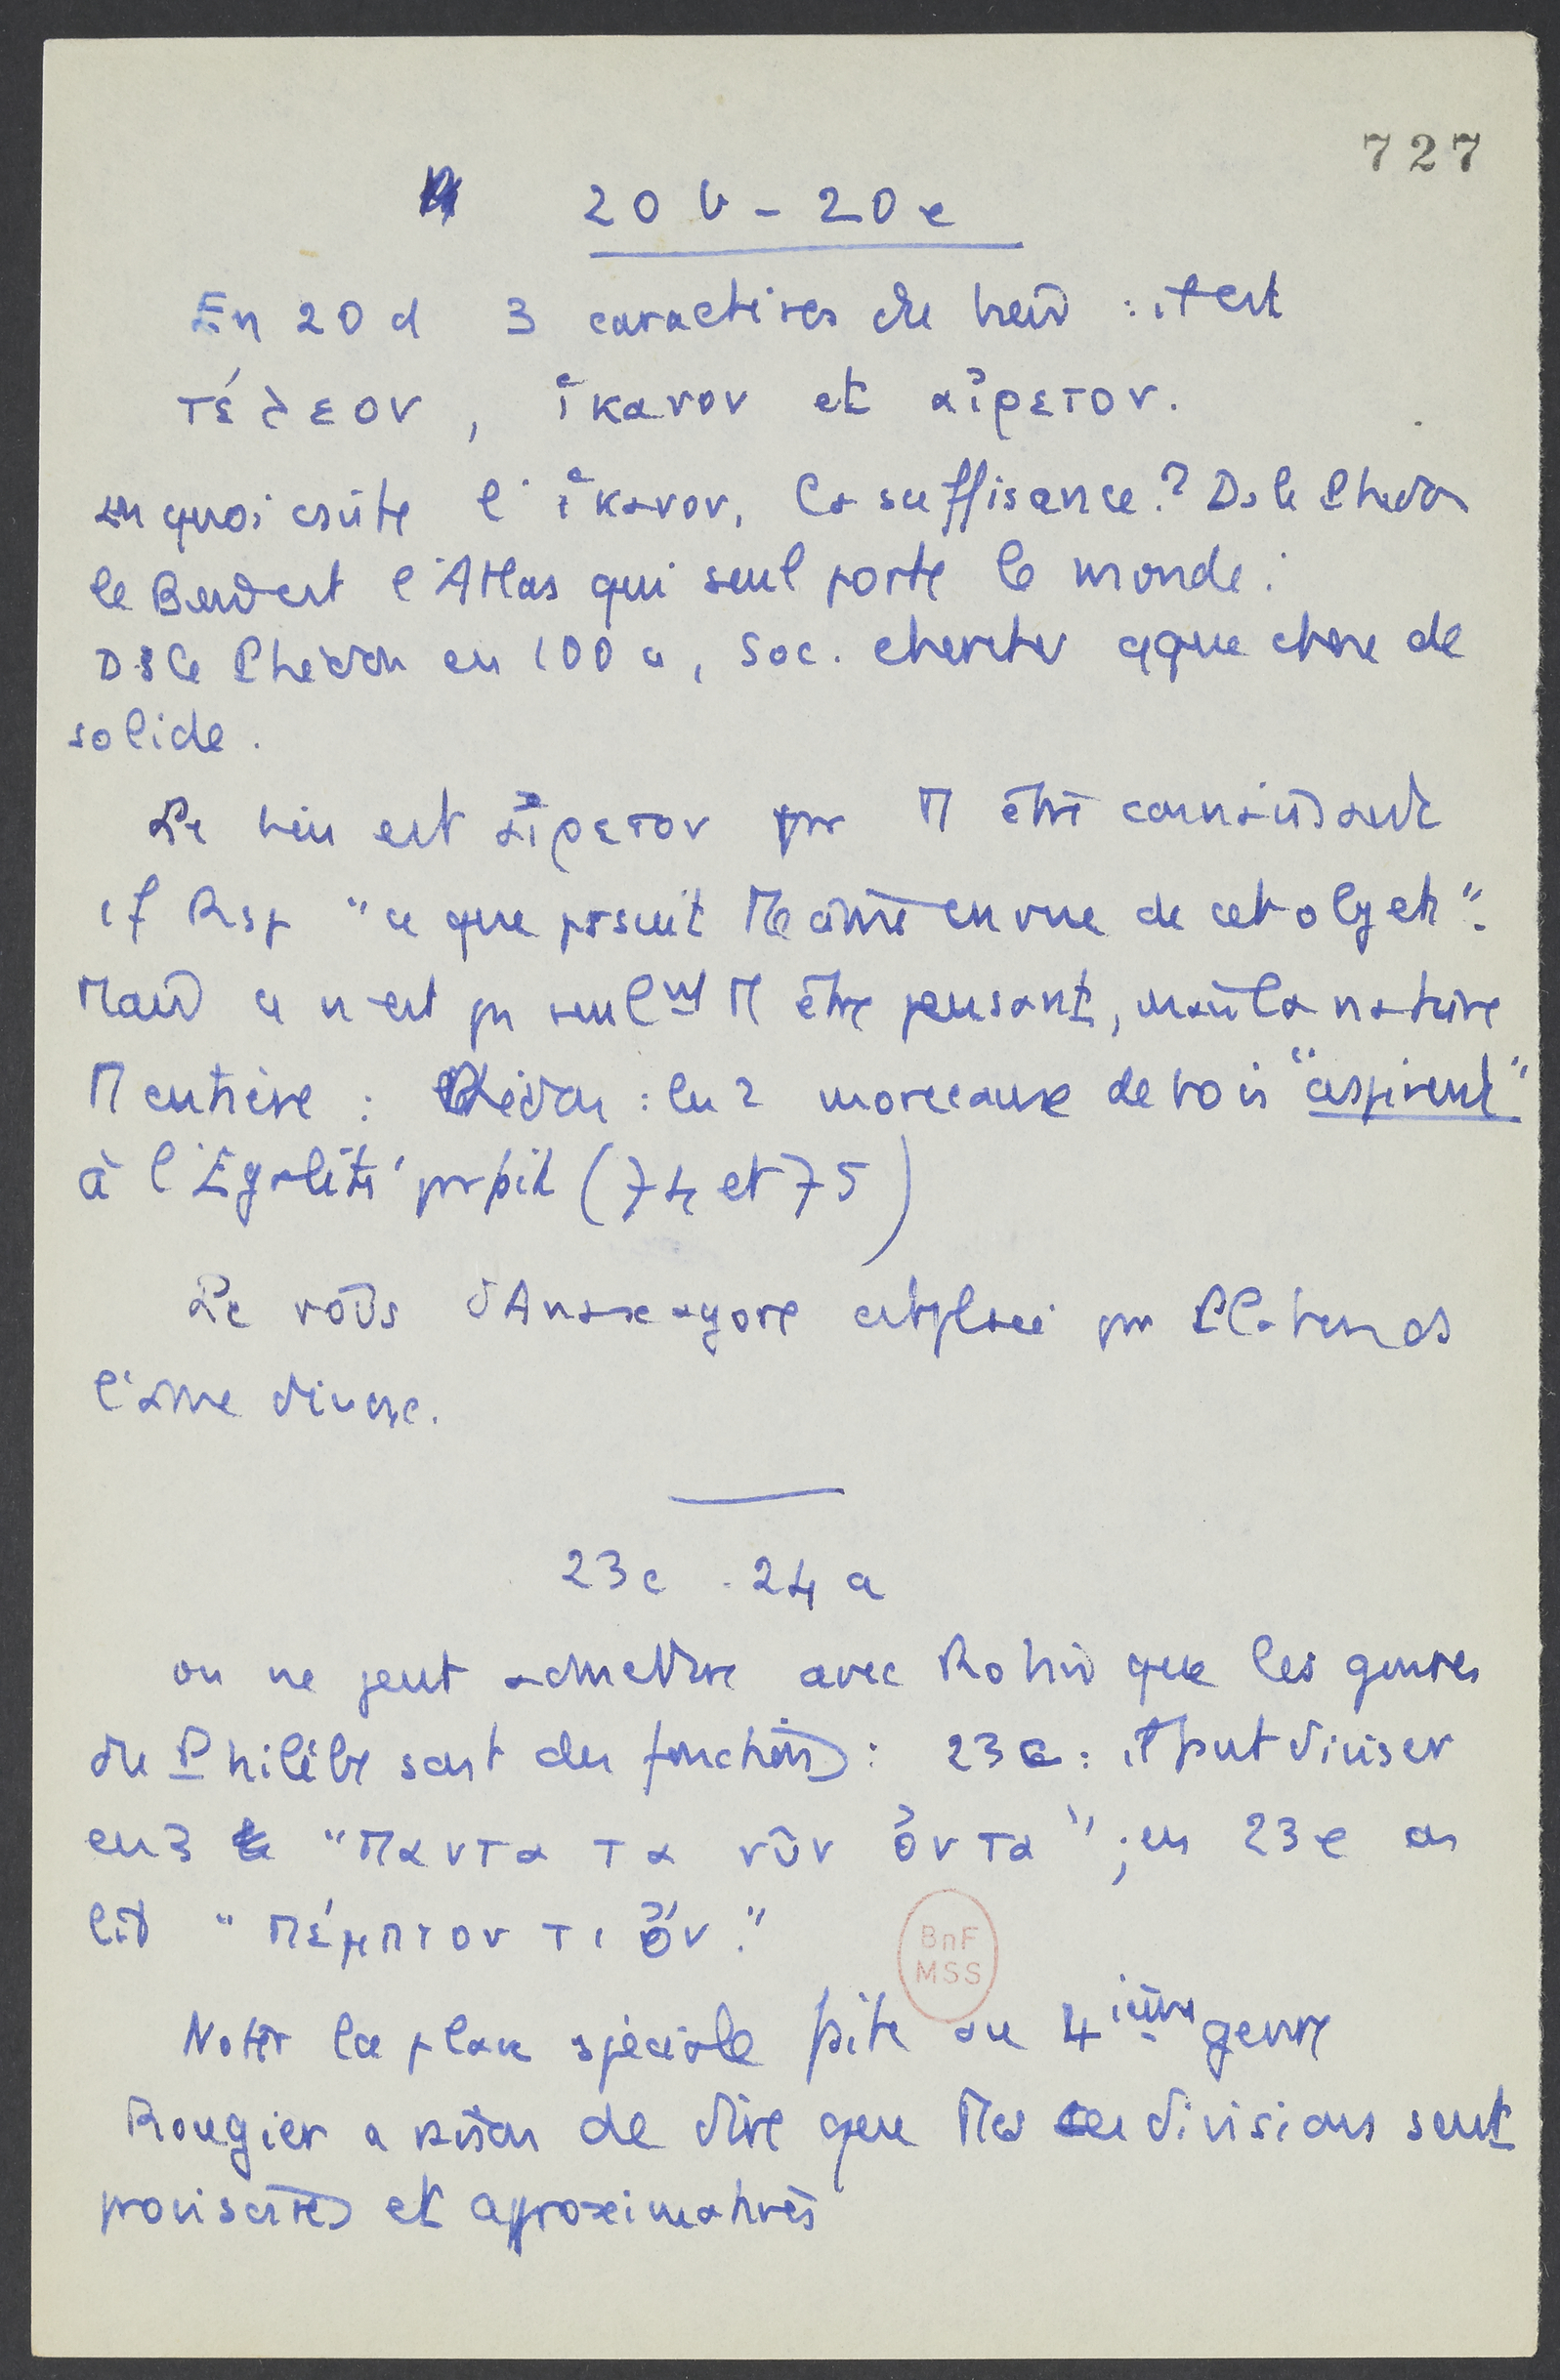 727
20 b - 20 e
En 20 d 3 caractères du bien : il est
τέλεον, ἱκανον et αἵρετον.
en quoi csiste l'ἱκανον, la suffisance ? Ds le Phédon
le Bien est l'Atlas qui seul porte le monde.
Ds le Phédon en 100 a, Soc. cherche qque chose de
solide.
Le bien est αἵρετον pr tt être connaissant
cf Rep "ce que prsuit tte âme en vue de cet objet".
Mais ce n'est ps seulmt tt être pensant, mais la nature
tt entière : Phédon : les 2 morceaux de bois "aspirent"
à l'Egalité prfaite (74 et 75)
Le νοῦς d'Anaxagore est placé pr Platon ds
l'âme
23 c - 24 a
on ne peut admettre avec Robin que les genres
du Philèbe sont des fonctions : 23 c : il faut diviser
en 3 "παντα τα νῦν ὄντα" ; en 23 e on
lit "πέμπτον τι ὄν."
BnF
MSS
Noter la place spéciale faite au 4ième genre
Rougier a raison de dire que ttes ces divisions sont
provisoires et approximatives